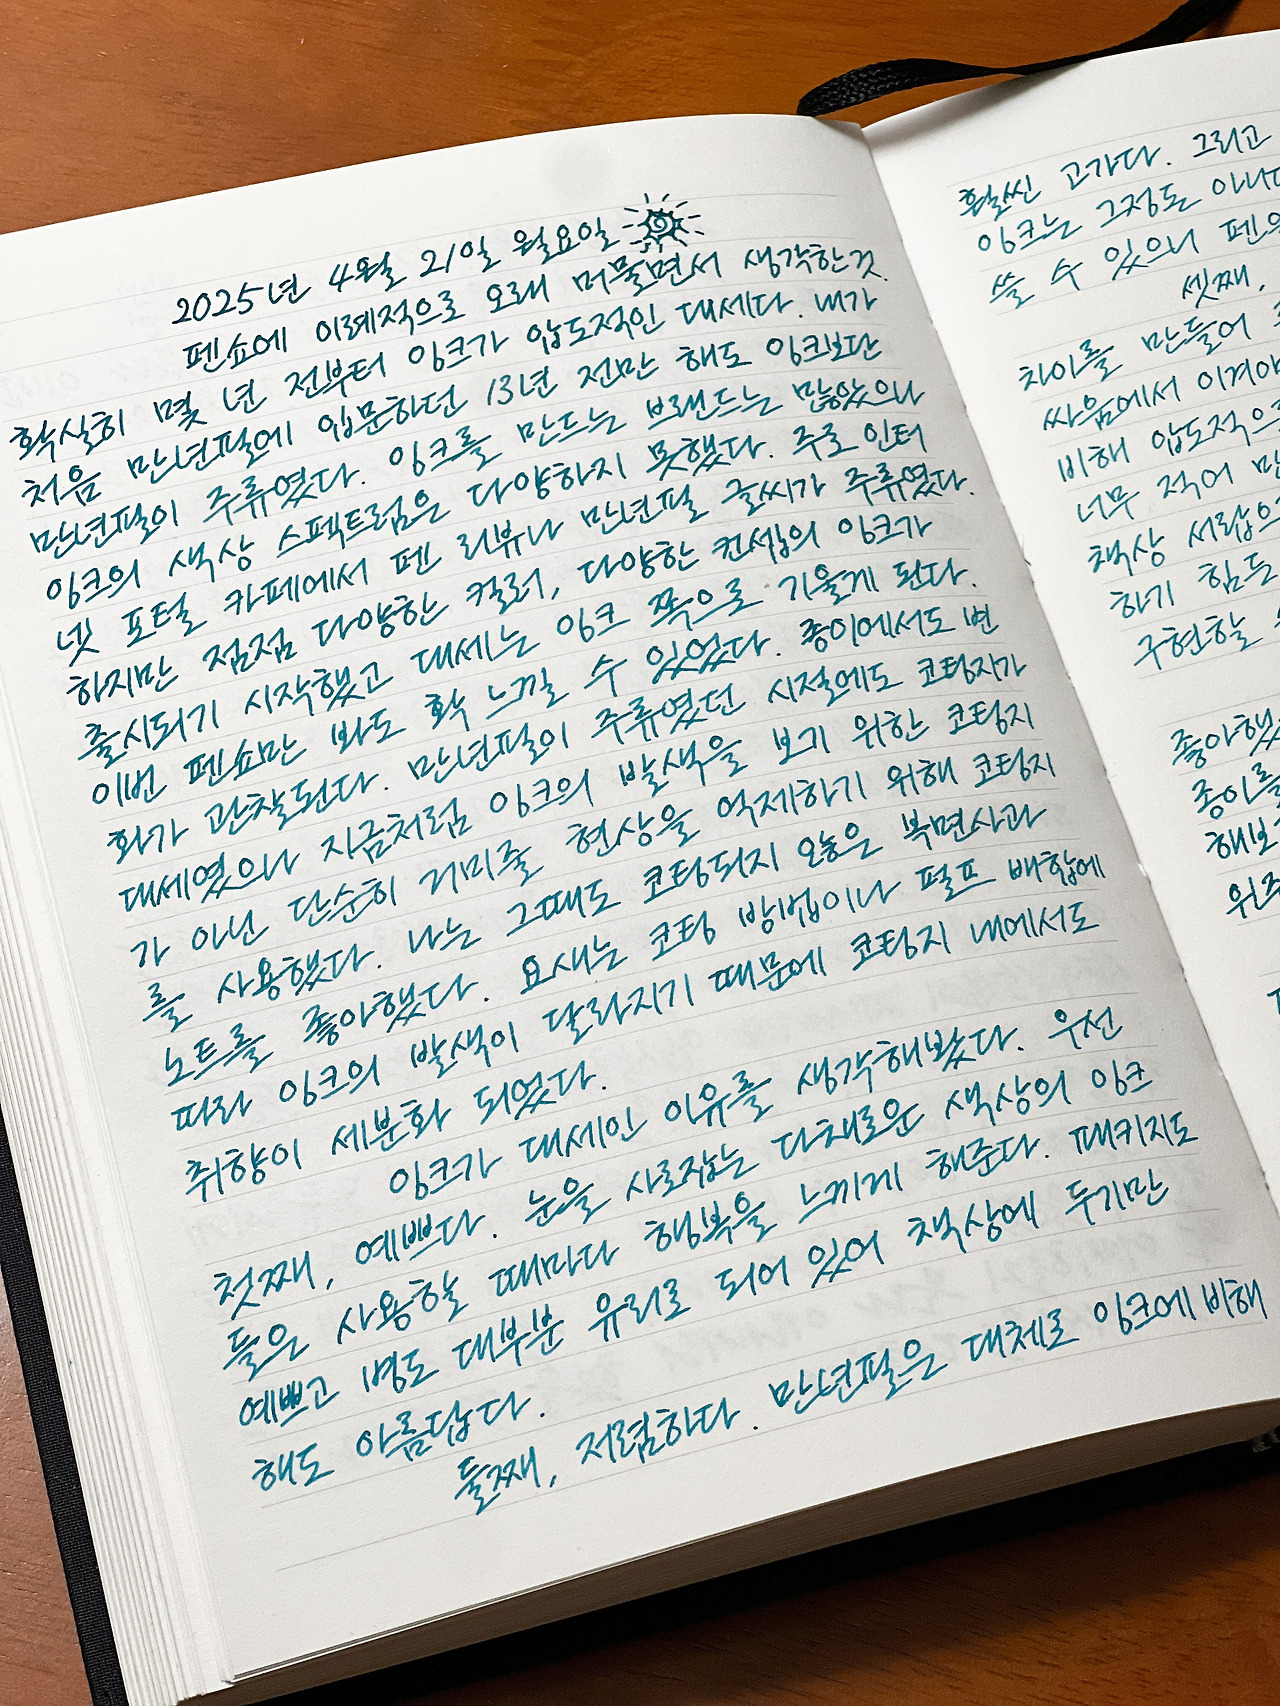 2025년 4월 21일 월요일
펜쇼에 이례적으로 오래 머물면서 생각한것.
확실히 몇 년 전부터 잉크가 압도적인 대세다. 내가
처음 만년필에 입문하던 13년 전만 해도 잉크보단
만년필이 주류였다. 잉크를 만드는 브랜드는 많았으나
잉크의 색상 스펙트럼은 다양하지 못했다. 주로 인터
넷 포털 카페에서 펜 리뷰나 만년필 글씨가 주류였다.
하지만 점점 다양한 컬러, 다양한 컨셉의 잉크가
출시되기 시작했고 대세는 잉크 쪽으로 기울게 된다.
이번 펜쇼만 봐도 확 느낄 수 있었다. 종이에서도 변
화가 관찰된다. 만년필이 주류였던 시절에도 코팅지가
대세였으나 지금처럼 잉크의 발색을 보기 위한 코팅지
가 아닌 단순히 거미줄 현상을 억제하기 위해 코팅지
를 사용했다. 나는 그때도 코팅되지 않은 복면사과
노트를 좋아했다. 요새는 코팅 방법이나 펄프 배합에
따라 잉크의 발색이 달라지기 때문에 코팅지 내에서도
취향이 세분화 되었다.
잉크가 대세인 이유를 생각해봤다. 우선
첫째, 예쁘다. 눈을 사로잡는 다채로운 색상의 잉크
들은 사용할 때마다 행복을 느끼게 해준다. 패키지도
예쁘고 병도 대부분 유리로 되어 있어 책상에 두기만
해도 아름답다.
둘째, 저렴하다. 만년필은 대체로 잉크에 비해
훨씬 고가다. 그리고
잉크는 그정도 아니
쓸 수 있으니 펜
셋째,
차이를 만들어
싸움에서 이겨야
비해 압도적으
너무 적어
책상 서랍
하기 힘든
구현할
좋아했
종이를
해보